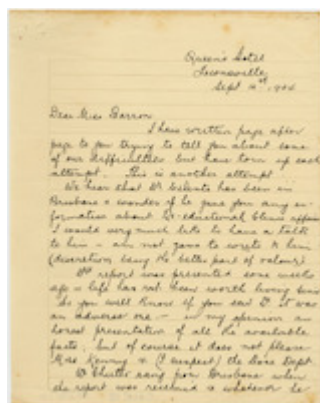 Queen's Hotel
Townsville
Sept
Dear Miss Barron
I have written page after
page to you trying to tell you about some
of our difficulties but have torn up each
attempt. This is another attempt.
We hear that Dr has been in
Brisbane & wonder if he gave you any in-
formation about Educational Clinic affairs
I would very much like to have a talk
to him - am not game to write to him
(discretion being the better part of valour)
report was presented some weeks
ago & life has not been worth living since
As you will know if you saw it it was
an adverse one - in my opinion an
honest presentation of all the available
facts, but of course it does not please
Miss Kenny & (I suspect) the Home Dept.
Dr rang from Brisbane when
the report was received & whatever he